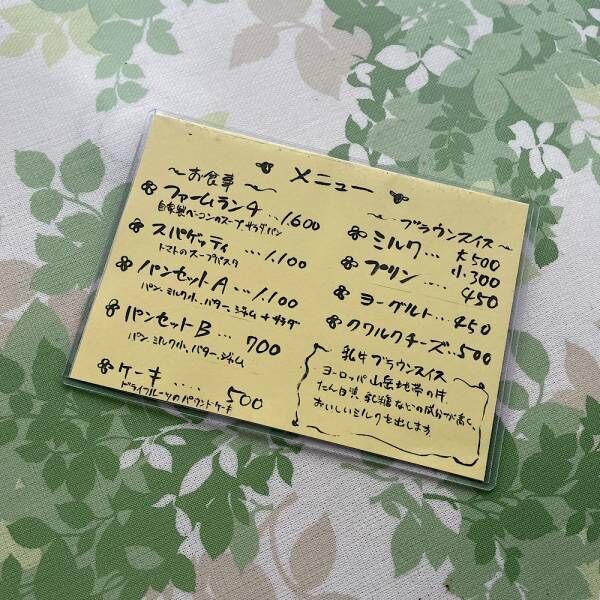 メニュー
～お食事～
ファームランチ...1,600
自家製ベーコンのスープ、サラダ、パン
スパゲッティ...1,100
トマトのスープパスタ
パンセットA...1,100
パン、ミルク小、バター、ジャム+サラダ
パンセットB...700
パン、ミルク小、バター、ジャム
ケーキ....500
ドライフルーツのパウンドケーキ
～ブラウンスイス～
ミルク...大500
小300
プリン....450
ヨーグルト...450
クワルクチーズ.500
乳牛ブラウンスイス
ヨーロッパ山岳地帯の牛
たん白質、乳糖などの成分が高く、
おいしいミルクを出します。